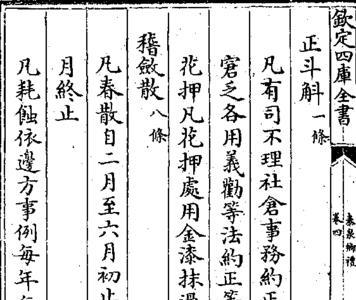 欽定四庫全書
泰泉鄉禮
卷四
正斗斛一條
凡有司不理社倉事務約正
窘乏各用義勸等法約正
花押凡花押處用金漆抹過
稽斂散八條
凡春散自二月至六月初止
月終止
凡耗蝕依邊方事例每年